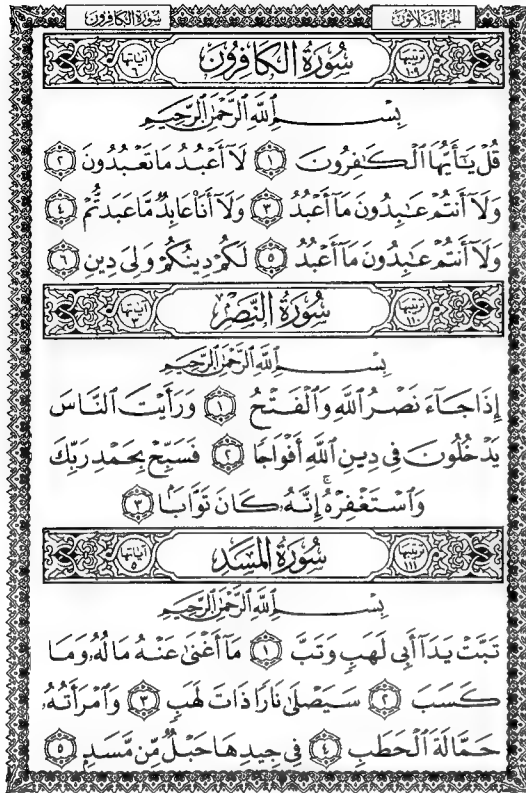 سُورَةُ الكافِرُونَ
الجُزءُ الثَّلاثُونَ
ترتيبها ١٠٩ سُورَةُ الكافِرُونَ آياتها ٦
بِسْمِ ٱللَّهِ ٱلرَّحْمَٰنِ ٱلرَّحِيمِ
قُلْ يَٰٓأَيُّهَا ٱلْكَٰفِرُونَ ١ لَآ أَعْبُدُ مَا تَعْبُدُونَ ٢
وَلَآ أَنتُمْ عَٰبِدُونَ مَآ أَعْبُدُ ٣ وَلَآ أَنَا۠ عَابِدٌ مَّا عَبَدتُّمْ ٤
وَلَآ أَنتُمْ عَٰبِدُونَ مَآ أَعْبُدُ ٥ لَكُمْ دِينُكُمْ وَلِىَ دِينِ ٦
ترتيبها ١١٠ سُورَةُ النَّصْرِ آياتها ٣
بِسْمِ ٱللَّهِ ٱلرَّحْمَٰنِ ٱلرَّحِيمِ
إِذَا جَآءَ نَصْرُ ٱللَّهِ وَٱلْفَتْحُ ١ وَرَأَيْتَ ٱلنَّاسَ
يَدْخُلُونَ فِى دِينِ ٱللَّهِ أَفْوَاجًا ٢ فَسَبِّحْ بِحَمْدِ رَبِّكَ
وَٱسْتَغْفِرْهُ ۚ إِنَّهُۥ كَانَ تَوَّابًۢا ٣
ترتيبها ١١١ سُورَةُ المَسَدِ آياتها ٥
بِسْمِ ٱللَّهِ ٱلرَّحْمَٰنِ ٱلرَّحِيمِ
تَبَّتْ يَدَآ أَبِى لَهَبٍ وَتَبَّ ١ مَآ أَغْنَىٰ عَنْهُ مَالُهُۥ وَمَا
كَسَبَ ٢ سَيَصْلَىٰ نَارًا ذَاتَ لَهَبٍ ٣ وَٱمْرَأَتُهُۥ
حَمَّالَةَ ٱلْحَطَبِ ٤ فِى جِيدِهَا حَبْلٌ مِّن مَّسَدٍۭ ٥